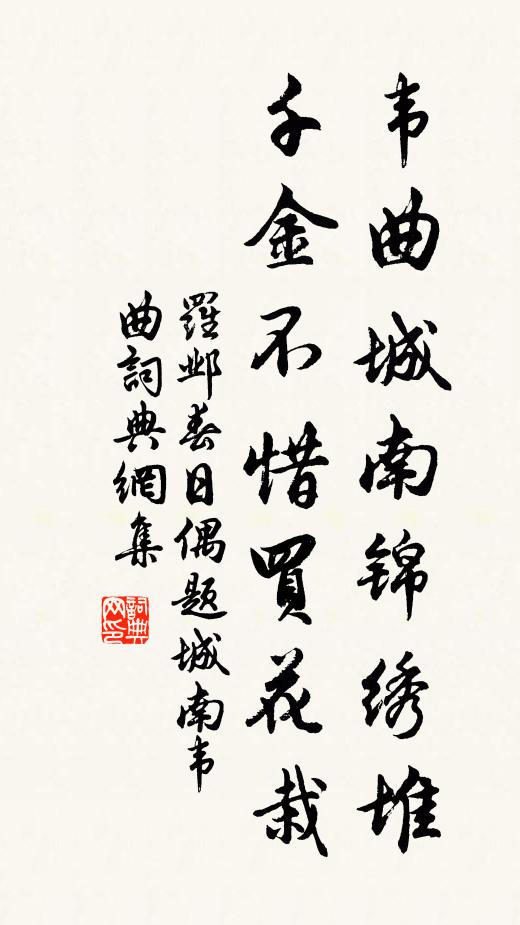 韦曲城南锦绣堆
千金不惜買花栽
羅邺春日偶题城南韦
曲詞典網集
詞典网印